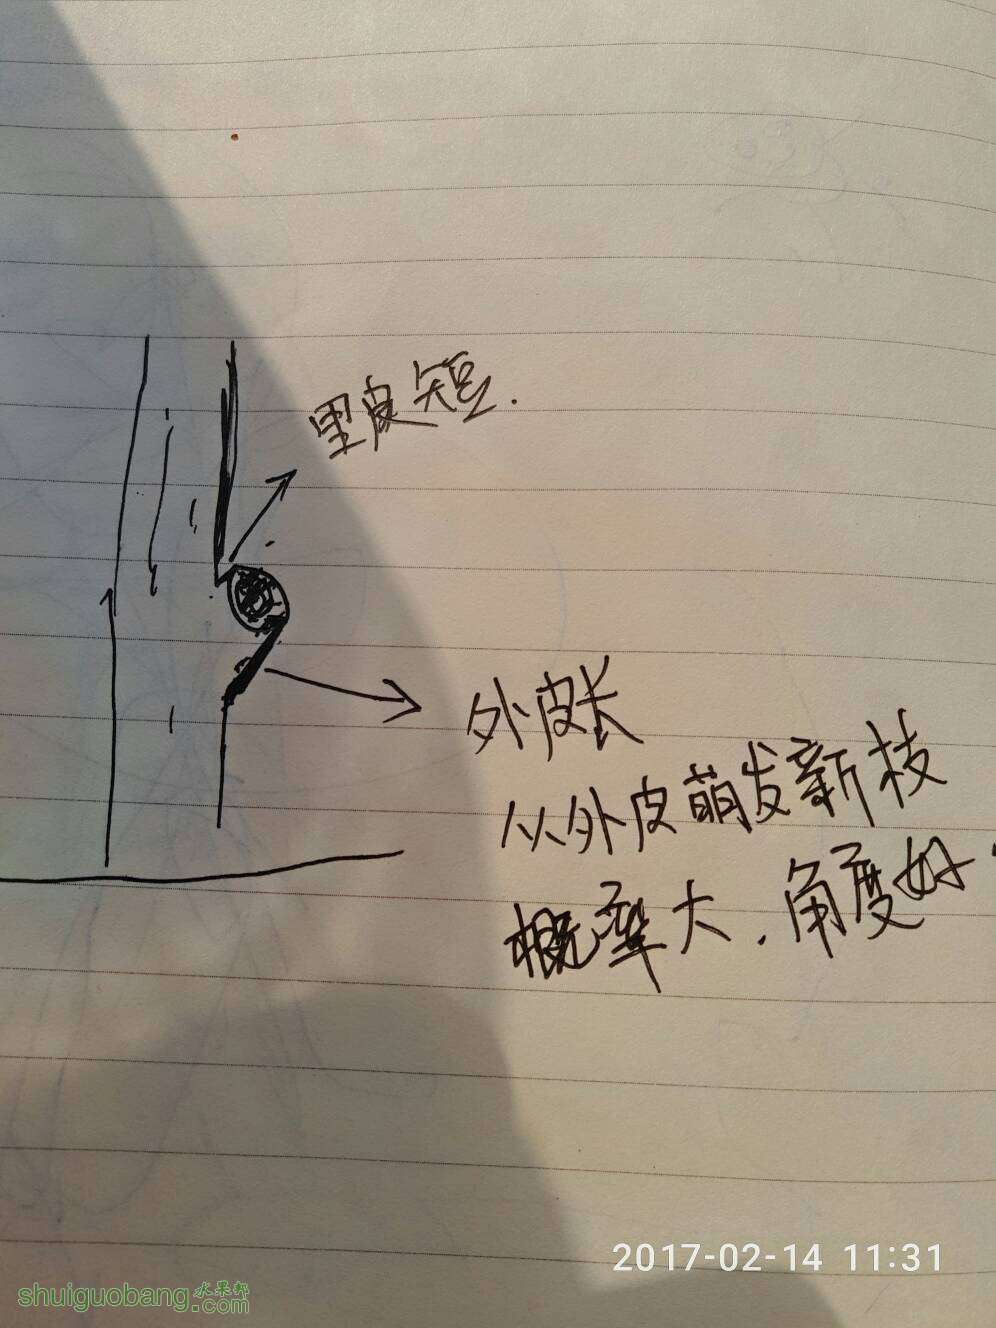 里皮短.
外皮长
从外皮萌发新枝
概率大.角度好
2017-02-14 11:31
shuiguobang.com
水果邦